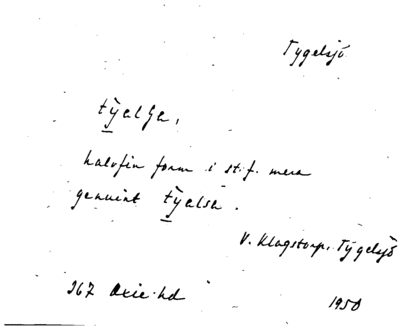 Tygelsjö
tỳalʒa,
halvfin form i st. f. mera
genuint tỳalsa.
V. Klagstorp, Tygelsjö
267 Oxie hd
1950